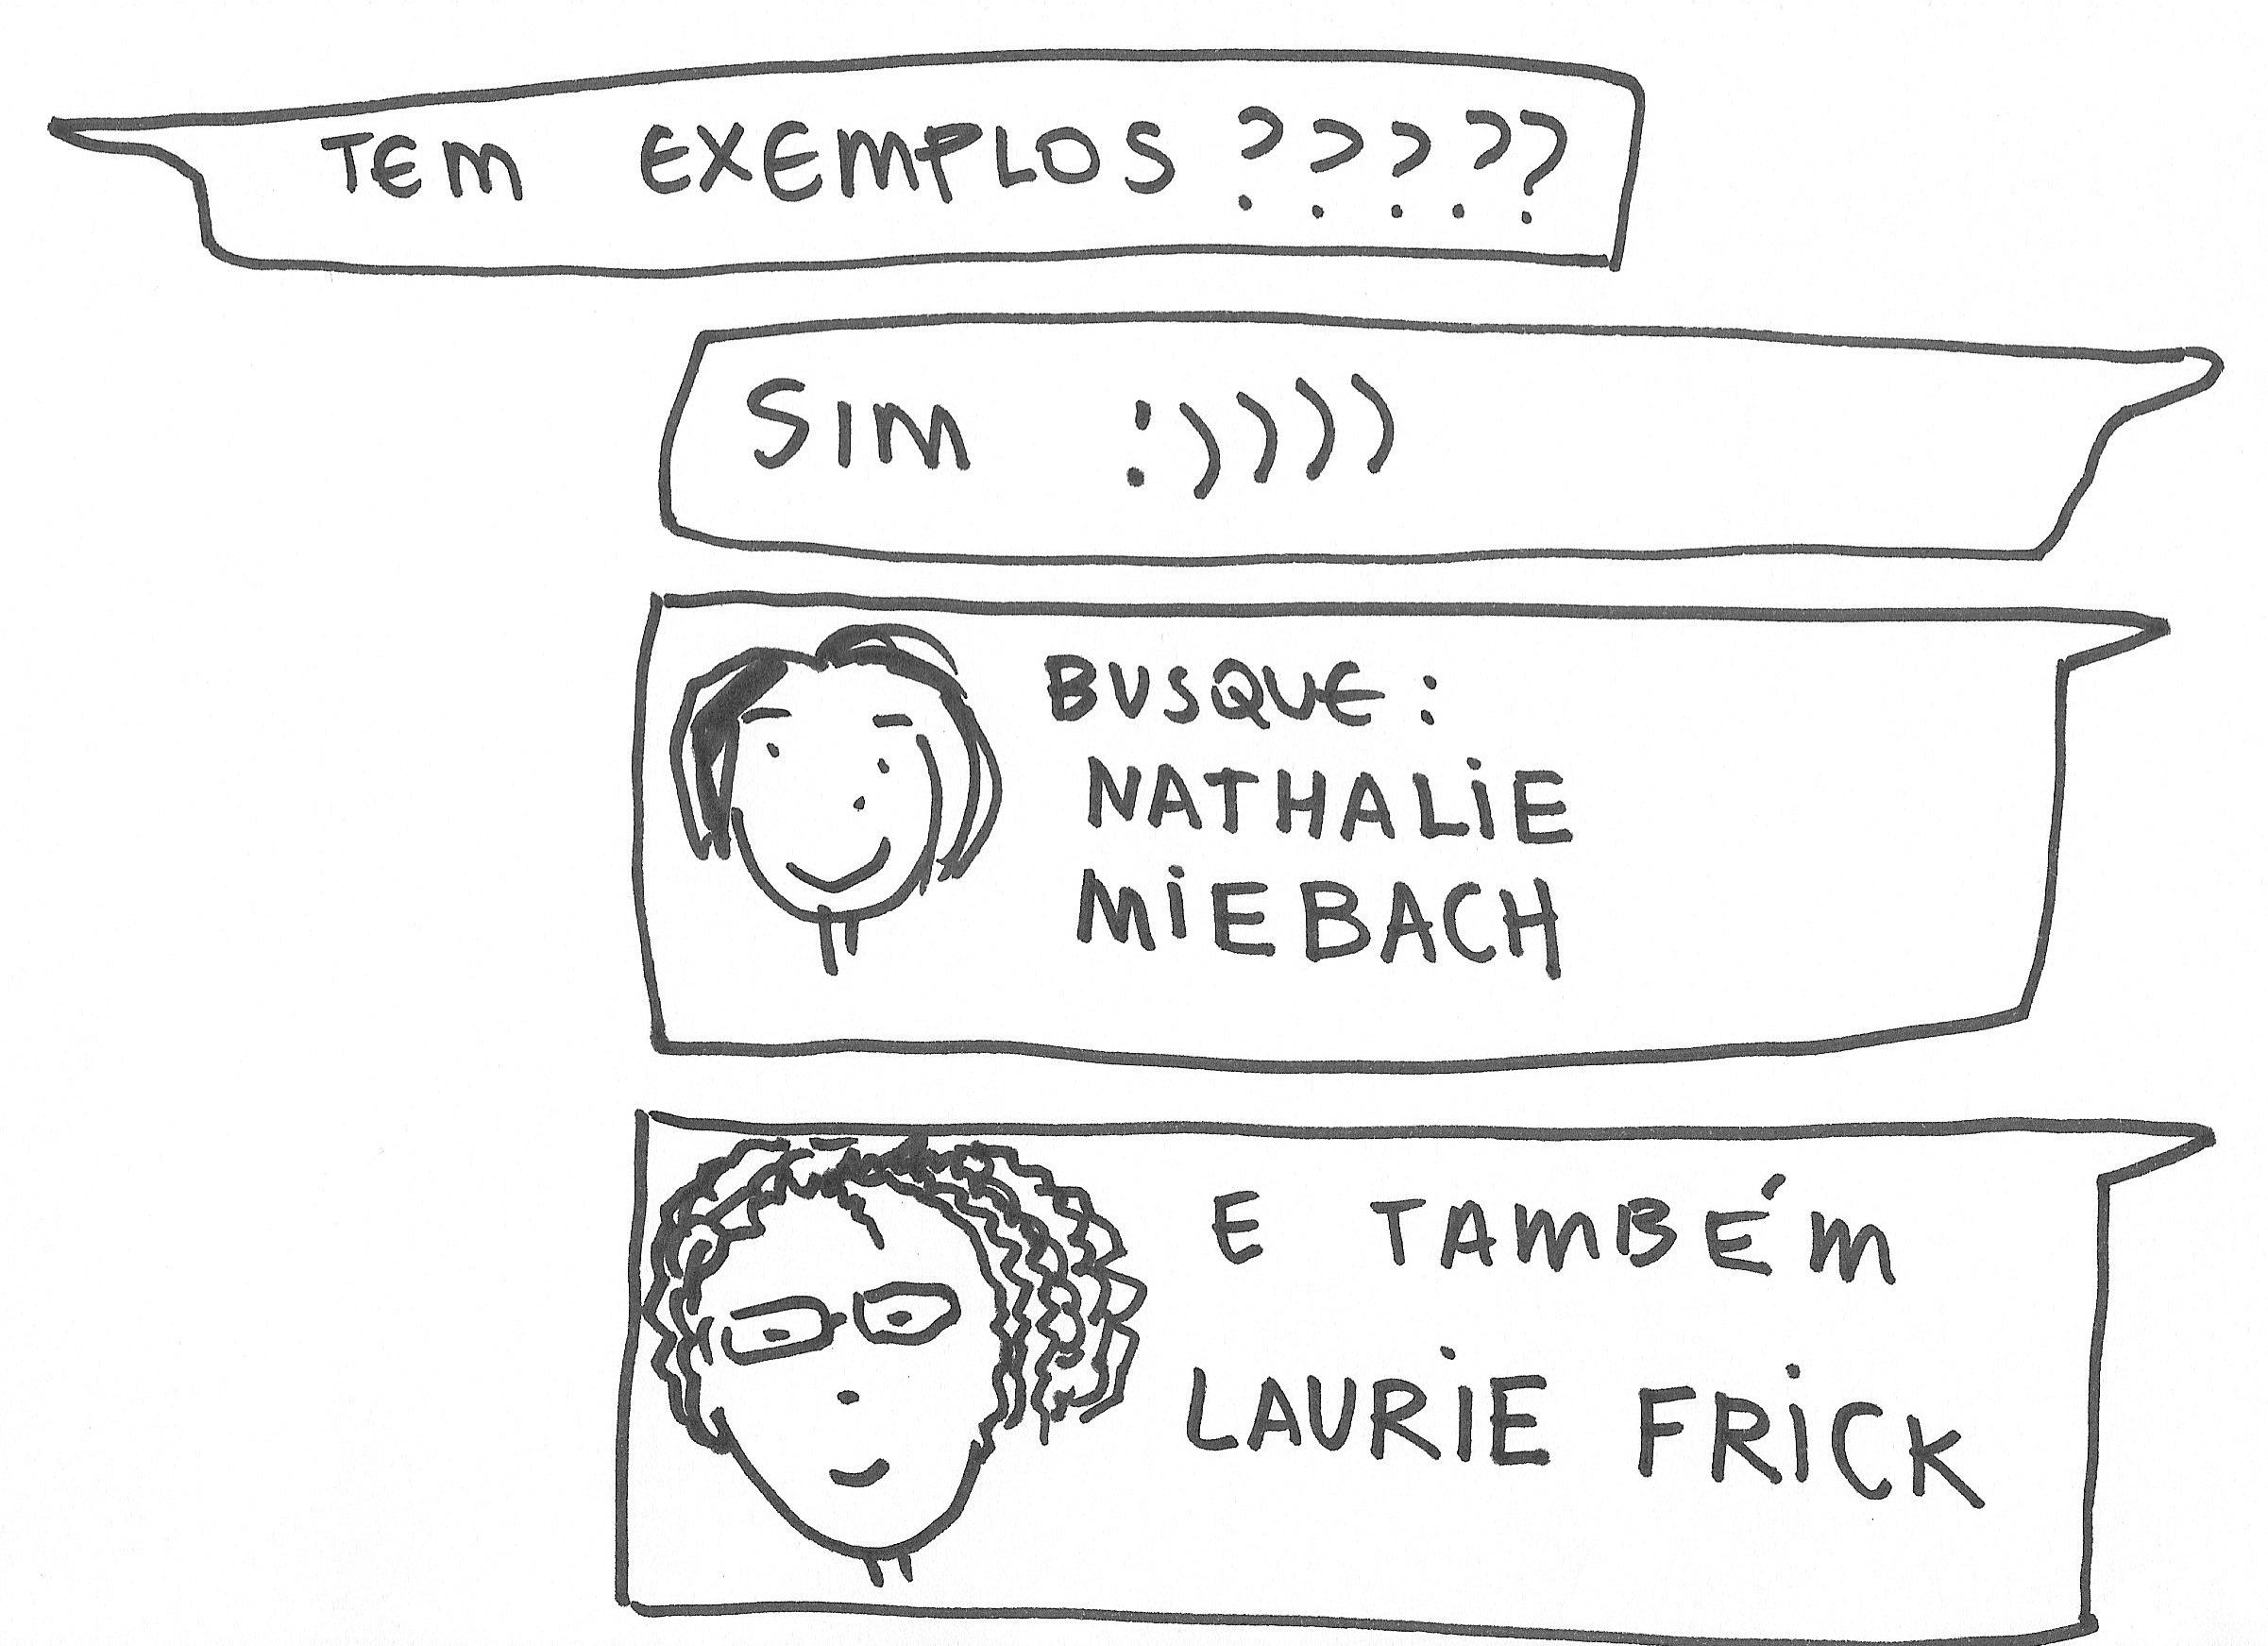 TEM EXEMPLOS ?????
SIM :))))
BUSQUE:
NATHALIE
MIEBACH
E TAMBÉM
LAURIE FRICK